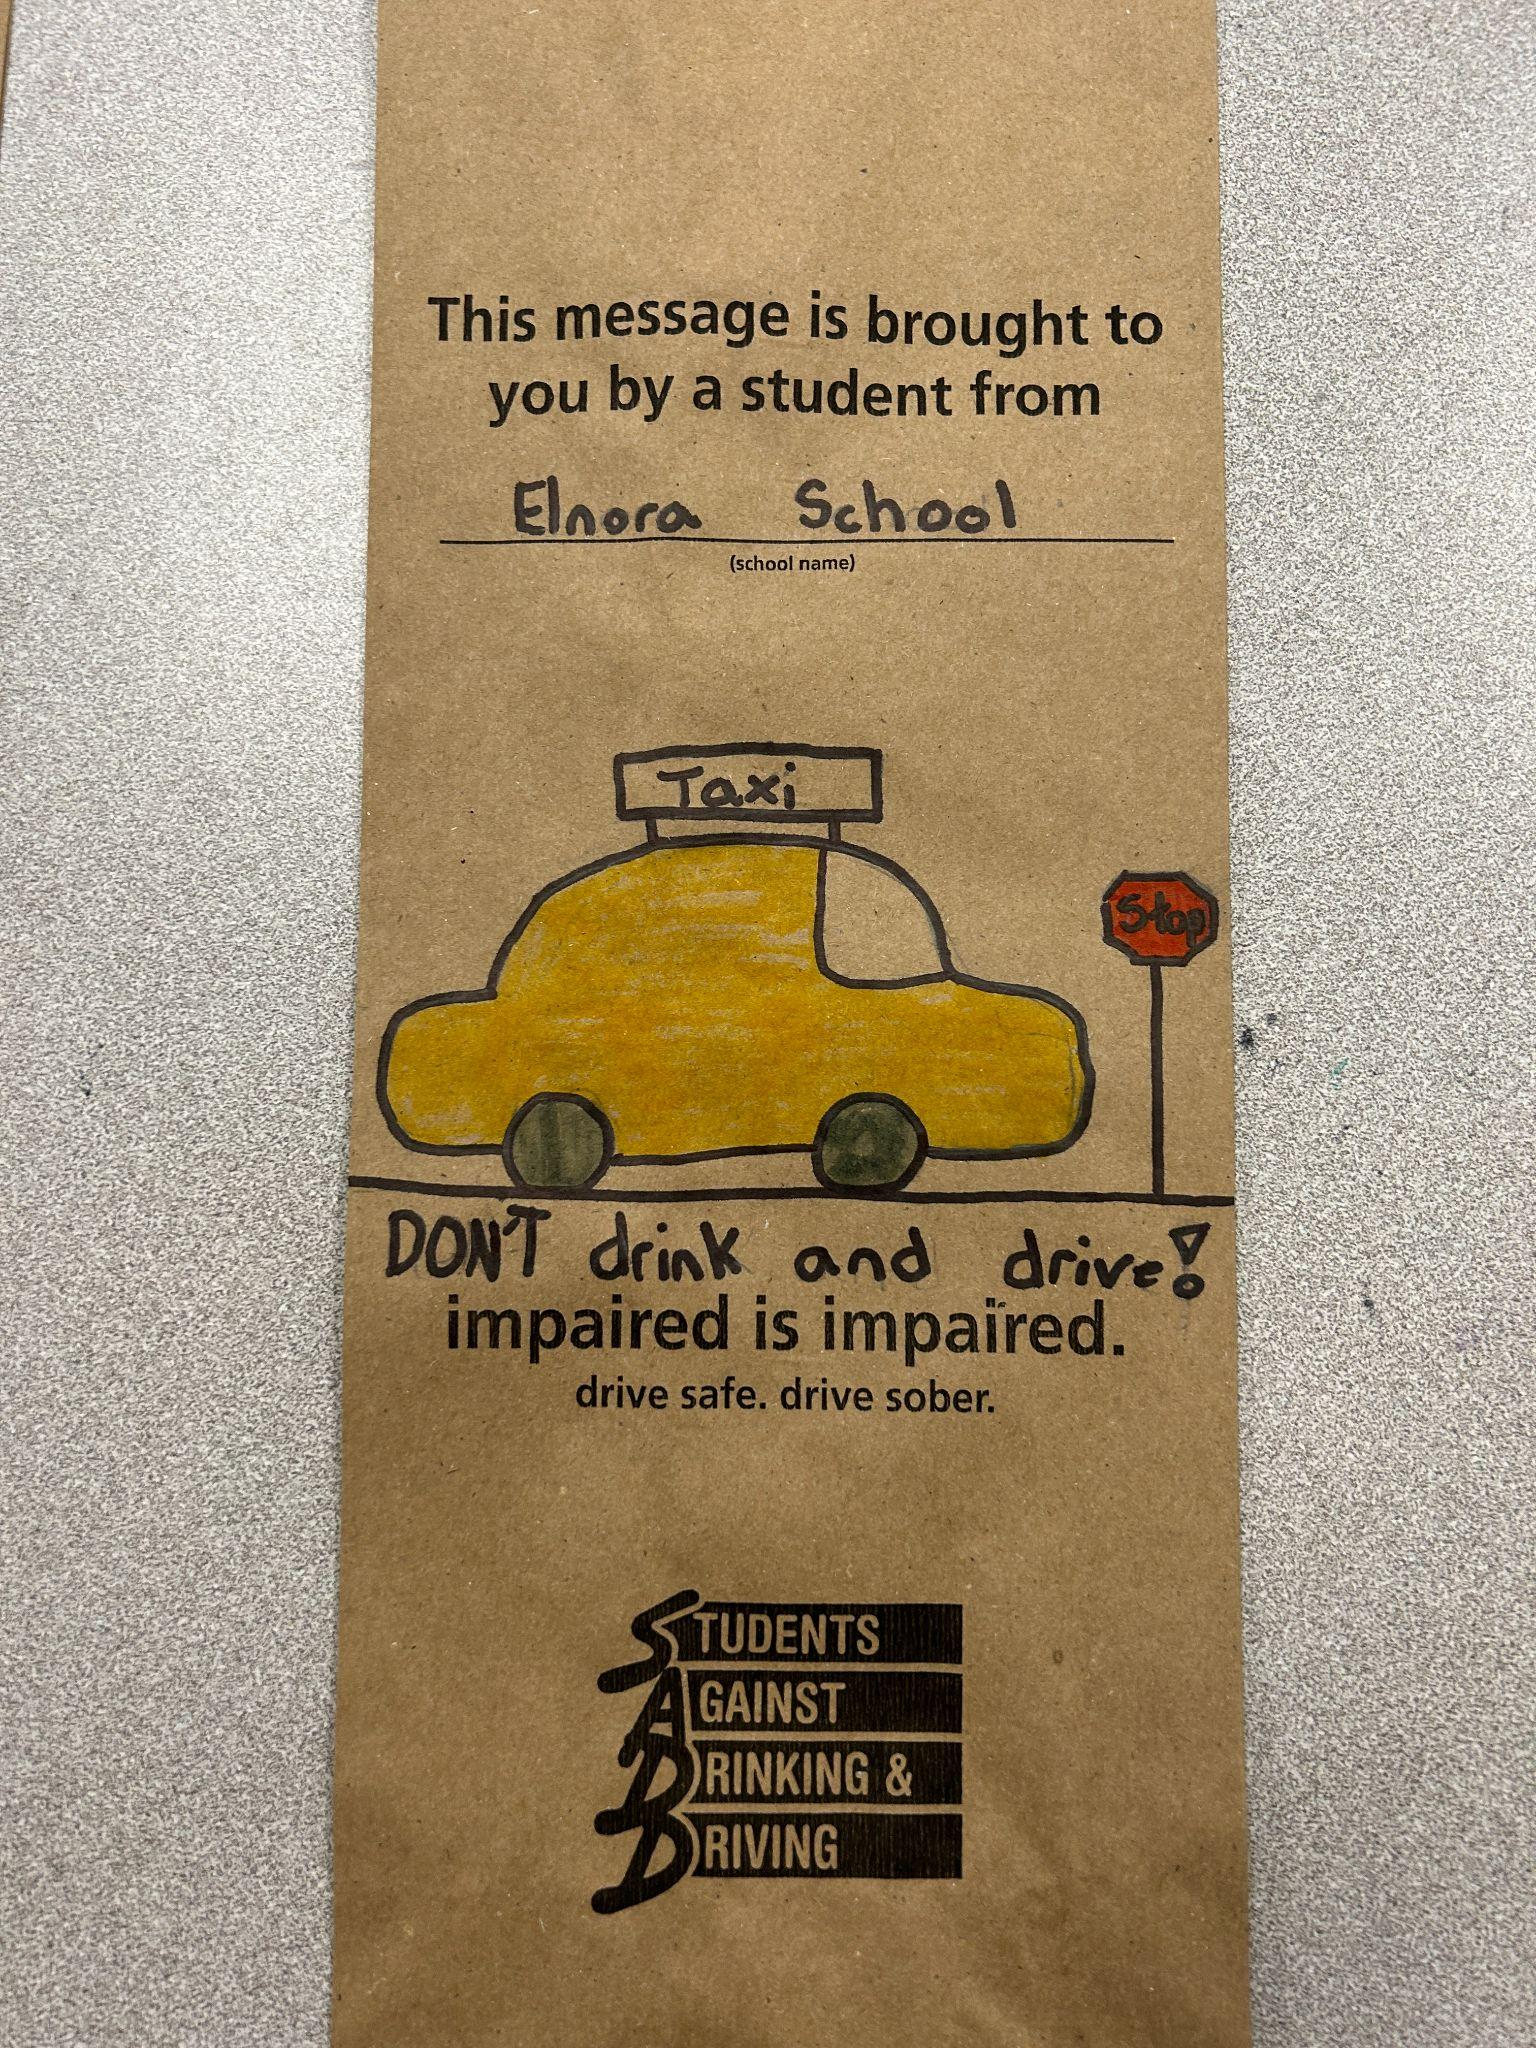 This message is brought to
you by a student from
Elnora School
(school name)
Taxi
Stop
DON'T drink and drive!
impaired is impaired.
drive safe. drive sober.
STUDENTS
AGAINST
DRINKING &
DRIVING